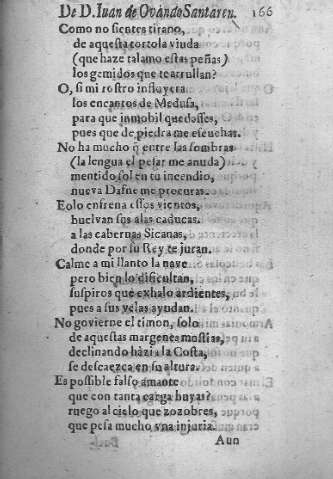 De D. Iuan de Ovando Santaren. 166
Como no sientes tirano,
de aquesta tortola viuda
(que haze talamo estas peñas)
los gemidos que te arrullan?
O, si mi rostro influyera
los encantos de Medusa,
para que inmobil quedasses,
pues que de piedra me escuchas.
No ha mucho q̃ entre las sombras
(la lengua el pesar me anuda)
mentido sol en tu incendio,
nueva Dafne me procuras.
Eolo enfrena essos vientos,
huelvan sus alas caducas
a las cabernas Sicanas,
donde por su Rey te juran.
Calme a mi llanto la nave
pero bien lo dificultan,
suspiros que exhalo ardientes,
pues a sus velas ayudan.
No govierne el timon, solo
de aquestas margenes mostias,
declinando házi a la Costa,
se descaezca en su altura.
Es possible falso amante
que con tanta carga huyas?
ruego al cielo que zozobres,
que pesa mucho vna injuria.
Aun